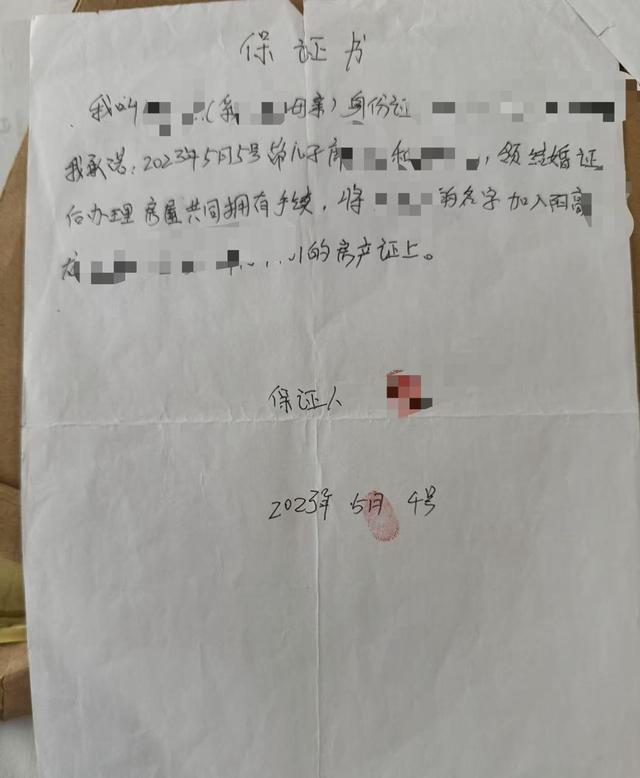 保证书
我叫(系母亲)身份证
我承诺:2023年5月5号 儿子 和,领结婚证
后办理房屋共同拥有手续,将的名字加入
的房产证上。
保证人
2023年 5月 4号